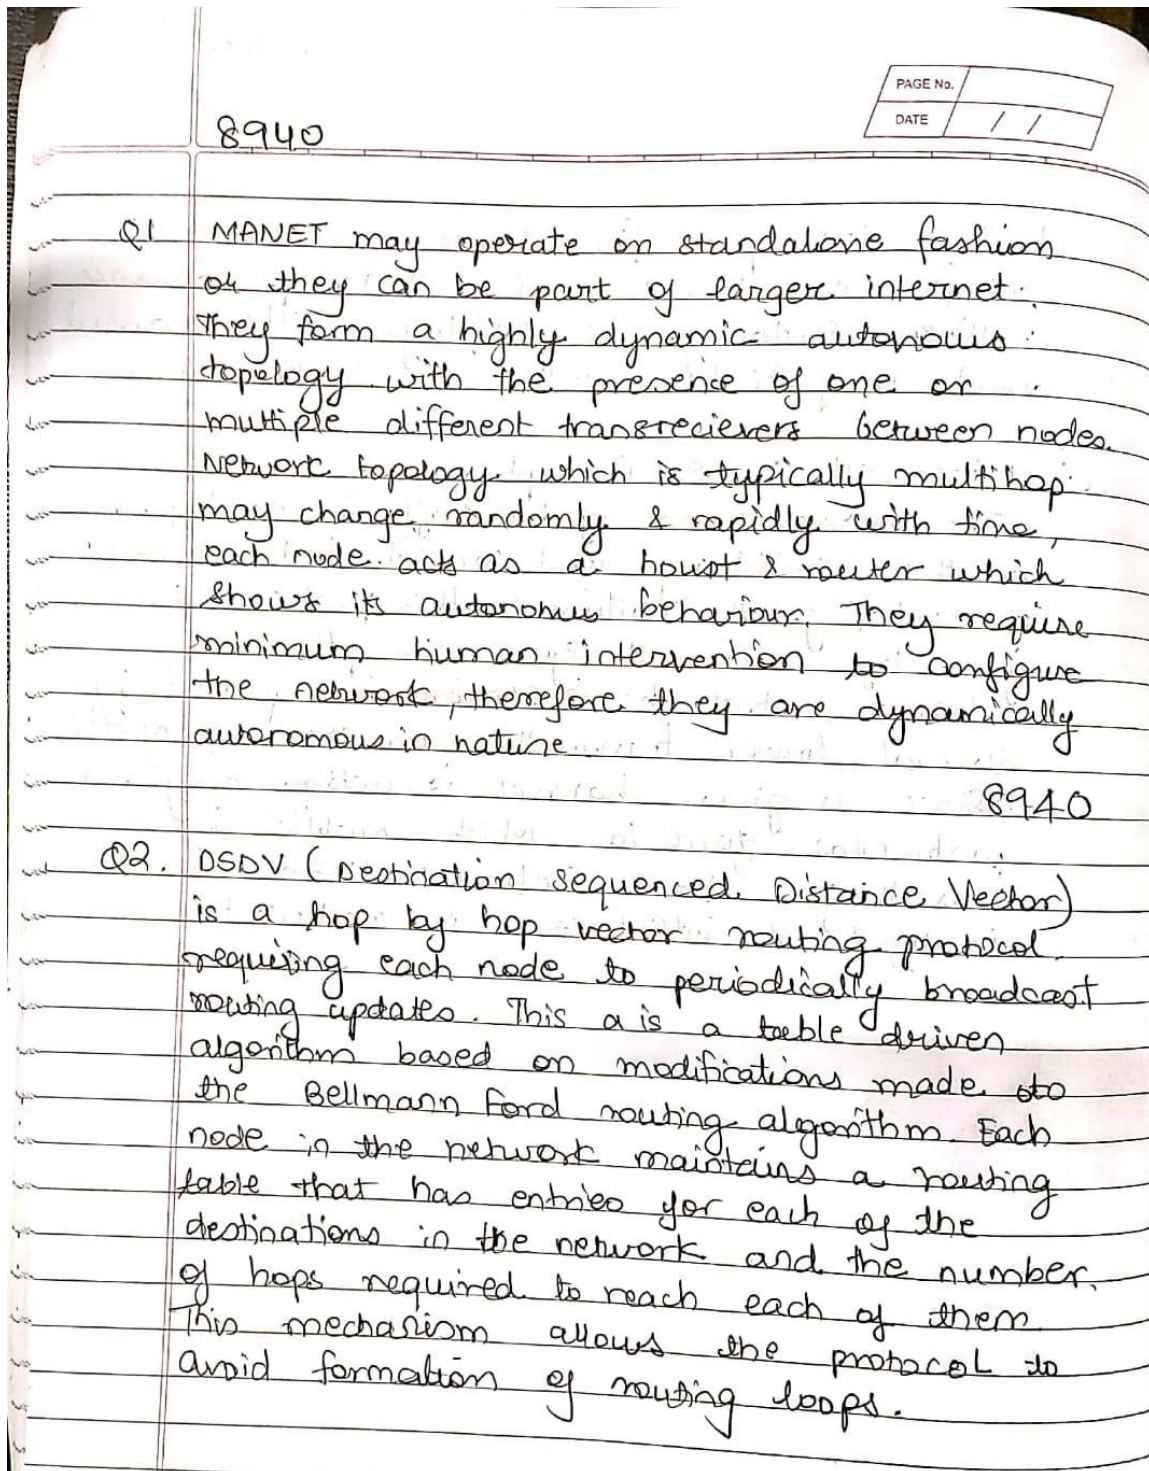 PAGE No.
DATE / /
8940
Q1 MANET may operate on standalone fashion
or they can be part of larger internet.
They form a highly dynamic autonous
topology with the presence of one or
multiple different transrecievers between nodes.
Network topology which is typically multihop
may change randomly & rapidly with time,
each node acts as a houst & router which
shows its autonomus behaviour. They require
minimum human intervention to configure
the network, therefore they are dynamically
autonomous in nature
8940
Q2. DSDV (Destination sequenced Distance Vector)
is a hop by hop vector routing protocol
requiring each node to periodically broadcast
routing updates. This a is a table driven
algorithm based on modifications made to
the Bellmann Ford routing algorithm. Each
node in the network maintains a routing
table that has entries for each of the
destinations in the network and the number
of hops required to reach each of them
This mechanism allows the protocol to
avoid formation of routing loops.